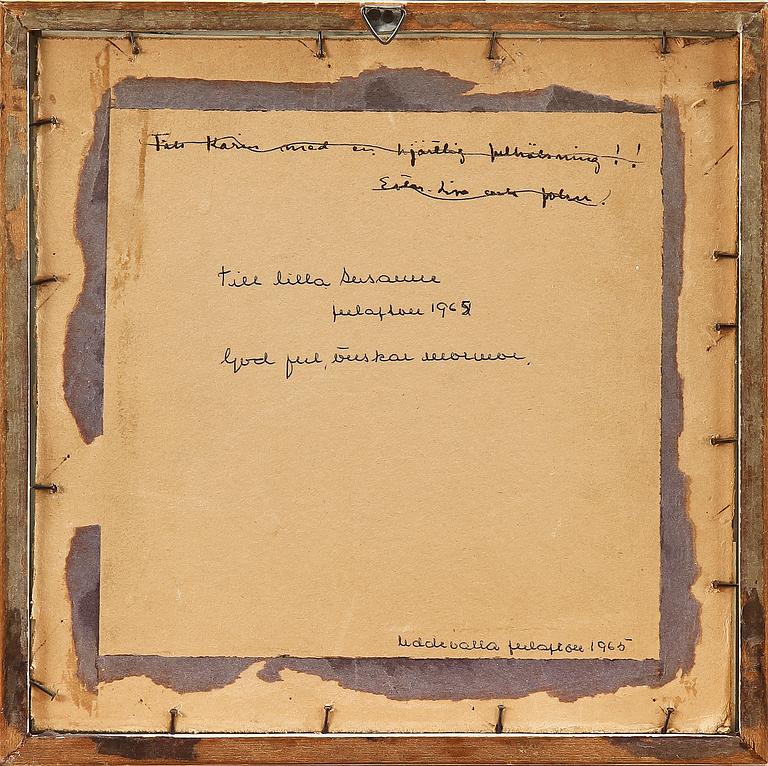 Till Karin med en hjärtlig julhälsning!!
Ester, Lisa och John!
till lilla Susanne
julafton 1965
God jul, önskar mormor.
Uddevalla julafton 1965